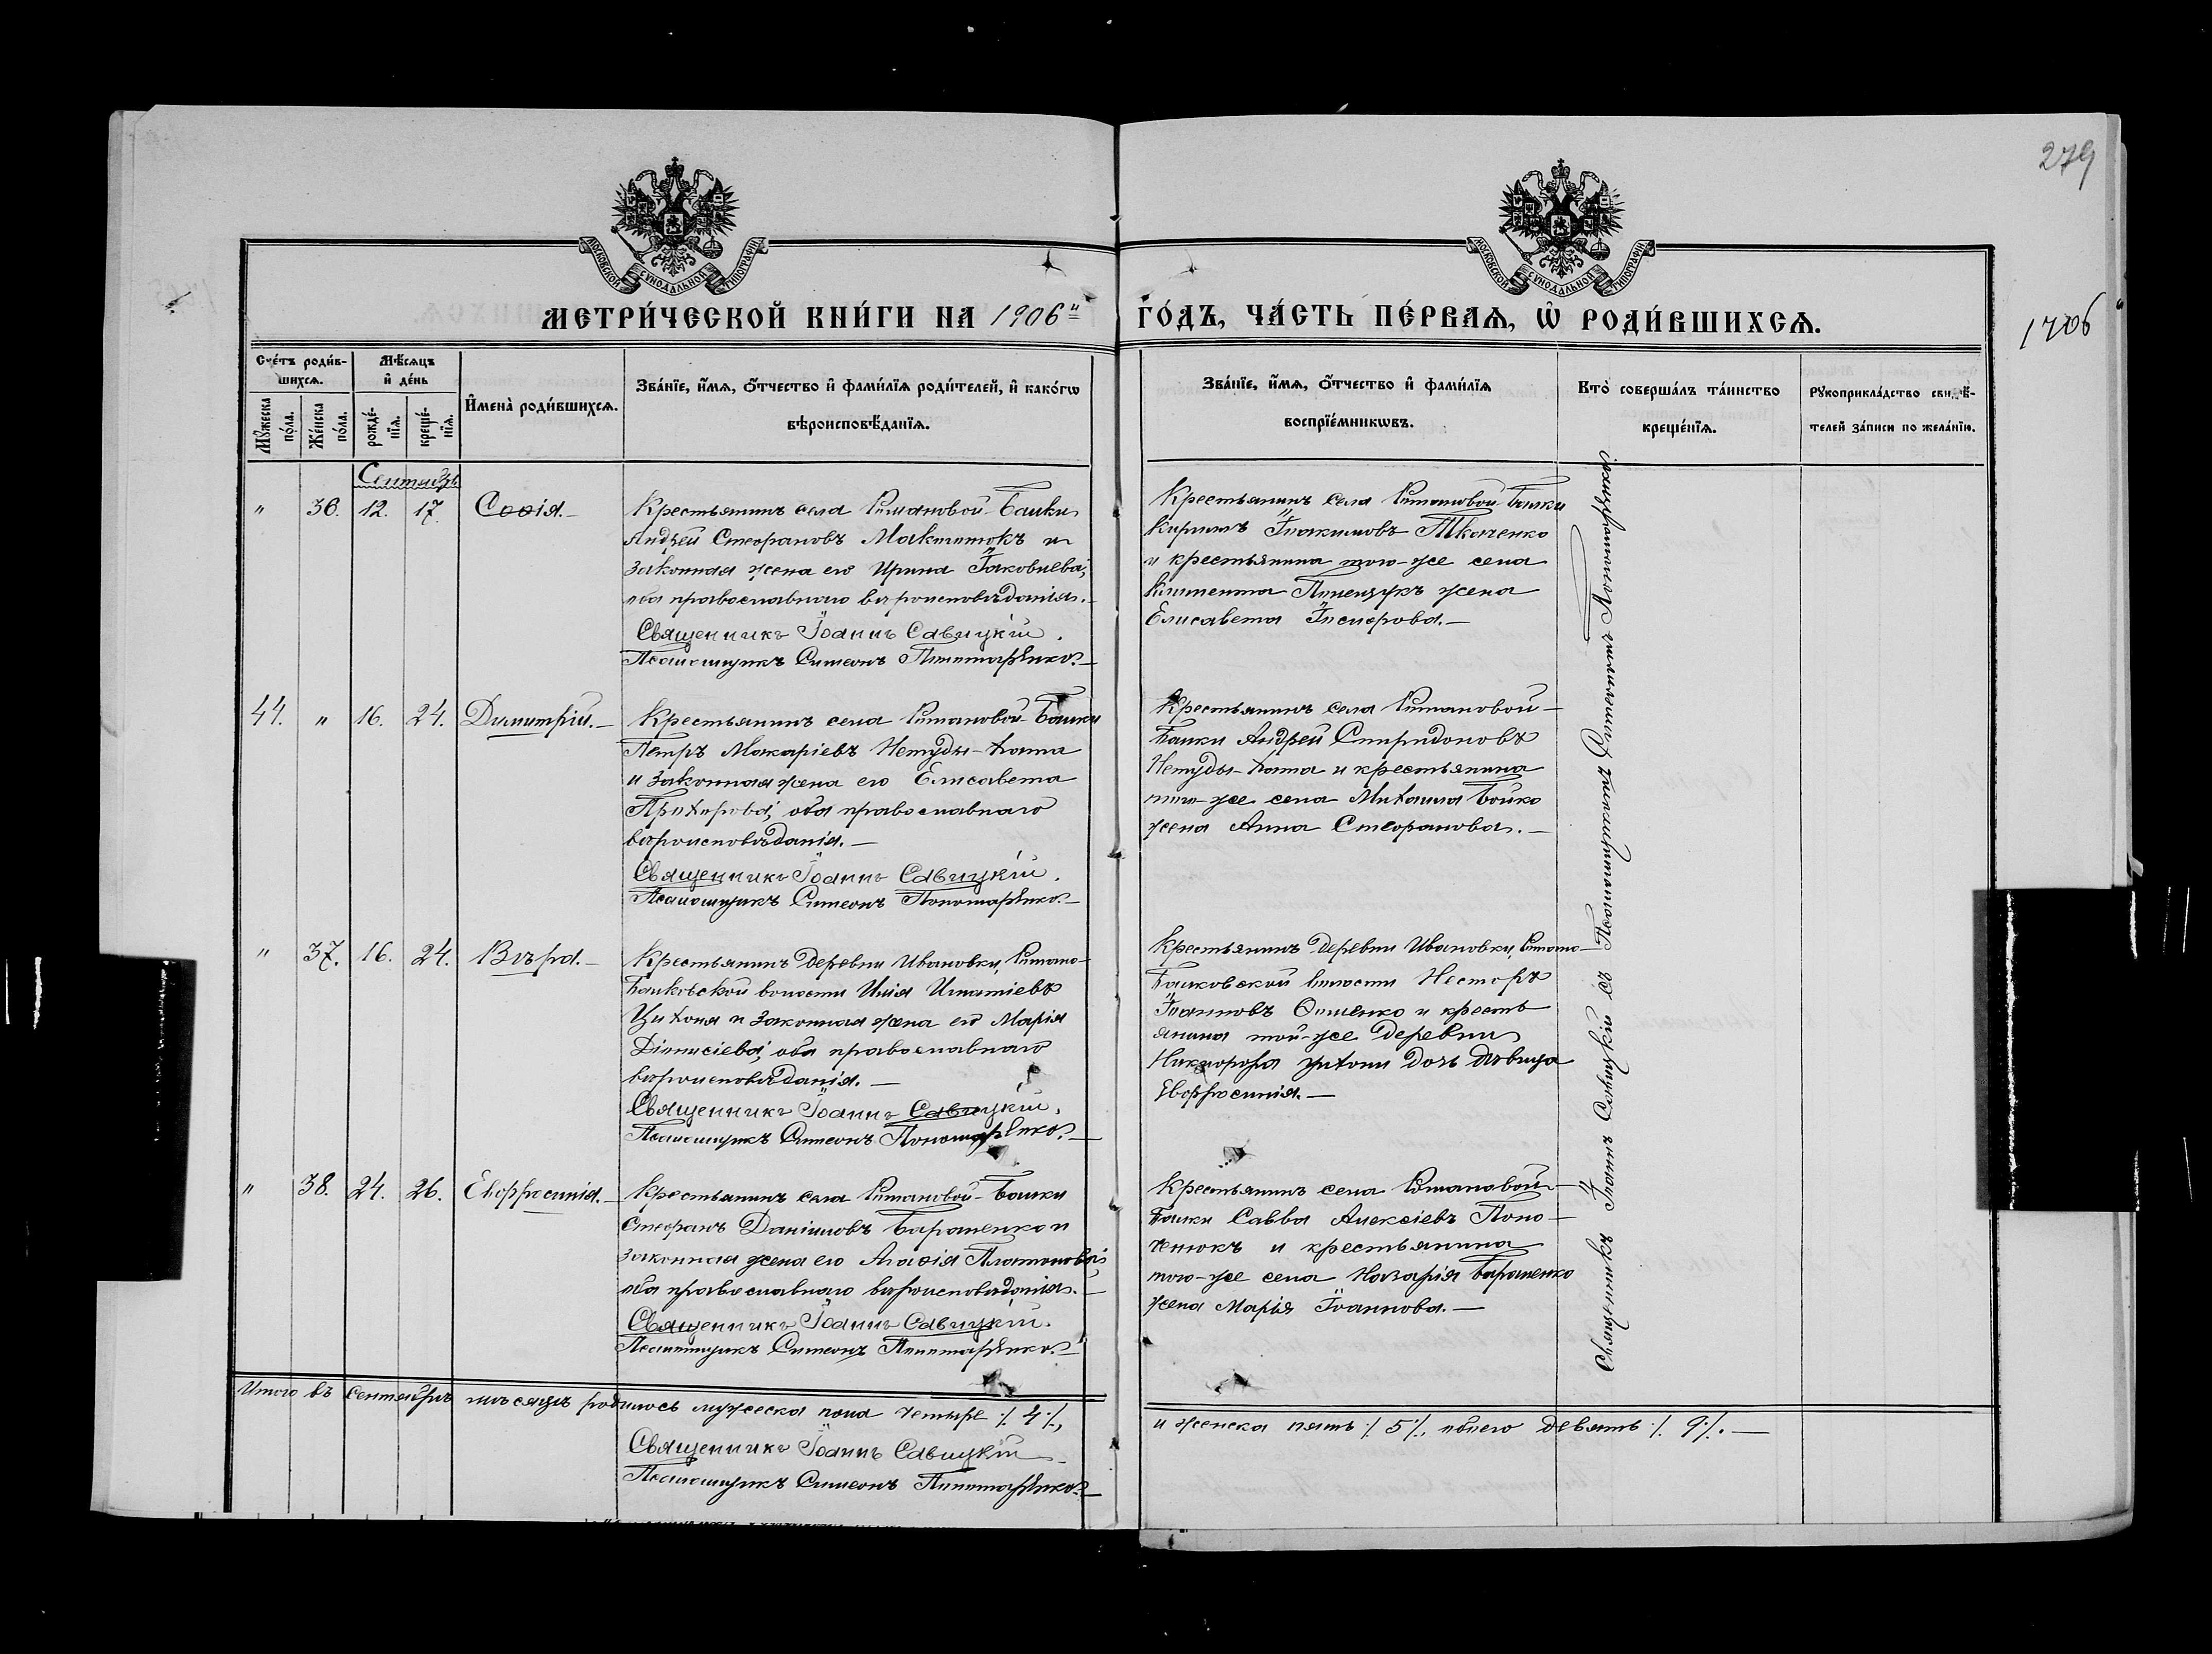 279
1906
МОСКОВСКОЙ СУНОДАЛЬНОЙ ТИПОГРАФІИ
МОСКОВСКОЙ СУНОДАЛЬНОЙ ТИПОГРАФІИ
МЕТРИ́ЧЕСКОЙ КНИ́ГИ НА 1906й
ГО́ДЪ, ЧА́СТЬ ПЕ́РВАѦ, Ѡ҆ РОДИ́ВШИХСѦ.
Сче́тъ роди́в-
шихсѧ.
Мѣ́сѧцъ
и҆ де́нь
Мꙋ́жеска
по́ла.
Же́нска
по́ла.
рожде́-
нїѧ.
креще́-
нїѧ.
И҆мена̀ роди́вшихсѧ.
Зва́нїе, и҆́мѧ, ѻ҆́тчество и҆ фами́лїѧ роди́телей, и҆ како́гѡ
вѣроисповѣ́данїѧ.
Зва́нїе, и҆́мѧ, ѻ҆́тчество и҆ фами́лїѧ
воспрїе́мникѡвъ.
Кто̀ соверша́лъ та́инство
креще́нїѧ.
Рꙋкоприкла́дство свидѣ́-
телей за́писи по жела́нїю.
Сентябрь
" 36. 12. 17. Софія.—
Крестьянинъ села Романовой-Балки
Андрей Стефановъ Максимокъ и
законная жена его Ирина Іаковлева,
оба православнаго вѣроисповѣданія.
Священникъ Іоаннъ Савицкій.
Псаломщикъ Симеонъ Пономаренко.—
Крестьянинъ села Романовой-Балки
Кириллъ Іоакимовъ Ткаченко
и крестьянина того-же села
Климента жена
Елисавета
44. " 16. 24. Димитрій.—
Крестьянинъ села Романовой-Балки
Петръ Макаріевъ Нетуды-хата
и законная жена его Елисавета
оба православнаго
вѣроисповѣданія.—
Священникъ Іоаннъ Савицкій.
Псаломщикъ Симеонъ Пономаренко.—
Крестьянинъ села Романовой-
Балки Андрей Спиридоновъ
Нетуды-хата и крестьянина
того-же села Михаила Бойко
жена Анна Стефанова.—
" 37. 16. 24. Вѣра.—
Крестьянинъ деревни Ивановки, Романо-
Балковской волости Илія Игнатіевъ
Цихоня и законная жена его Марія
Діонисіева, оба православнаго
вѣроисповѣданія.—
Священникъ Іоаннъ Савицкій.
Псаломщикъ Симеонъ Пономаренко.—
Крестьянинъ деревни Ивановки, Романо-
Балковской волости Несторъ
Іоанновъ и кресть
янина той-же деревни
Никифора Цихони дочь дѣвица
Евфросинія.—
" 38. 24. 26. Евфросинія.—
Крестьянинъ села Романовой-Балки
Стефанъ Даніиловъ Бараненко и
законная жена его Агафія Платонова,
оба православнаго вѣроисповѣданія.—
Священникъ Іоаннъ Савицкій.
Псаломщикъ Симеонъ Пономаренко.—
Крестьянинъ села Романовой-
Балки Савва Алексіевъ Попо-
и крестьянина
того-же села Назарія Бараненко
жена Марія Іоаннова.—
Священникъ Іоаннъ Савицкій съ Псаломщикомъ Симеономъ Пономаренкомъ
Итого въ сентябрѣ мѣсяцѣ родилось мужеска пола четыре ⁒ 4 ⁒,
и женска пять ⁒ 5 ⁒, обоего девять ⁒ 9 ⁒.—
Священникъ Іоаннъ Савицкій
Псаломщикъ Симеонъ Пономаренко.—